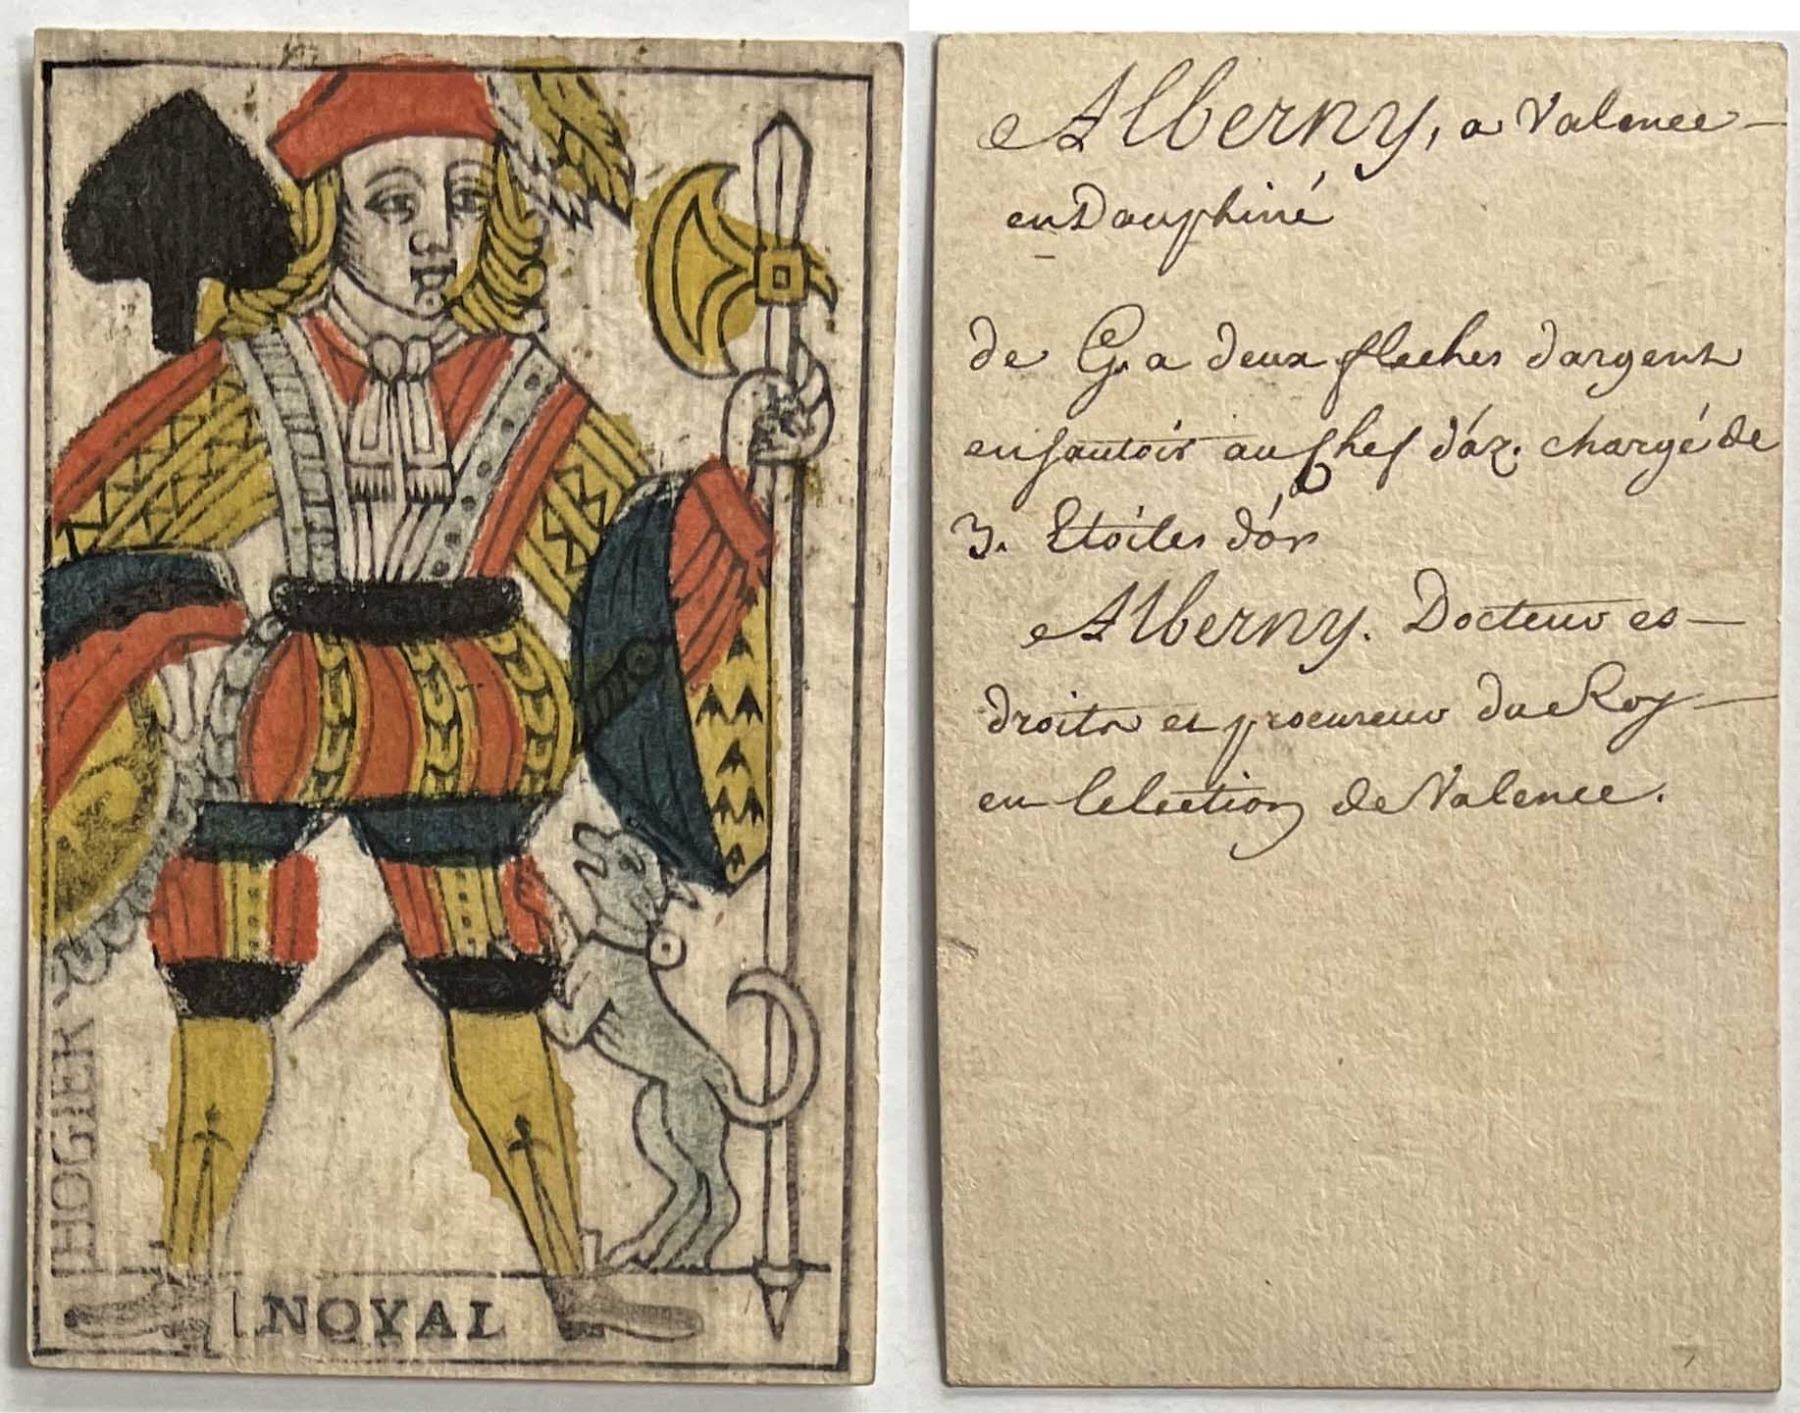 HOGIER
NOYAL
Alberny, a Valence
en Dauphiné
de G. a deux fleches dargent
en sautoir au chef d'az. chargé de
3. Etoiles d'or
Alberny. Docteur es
droits et procureur du Roy
en lelection de Valence.